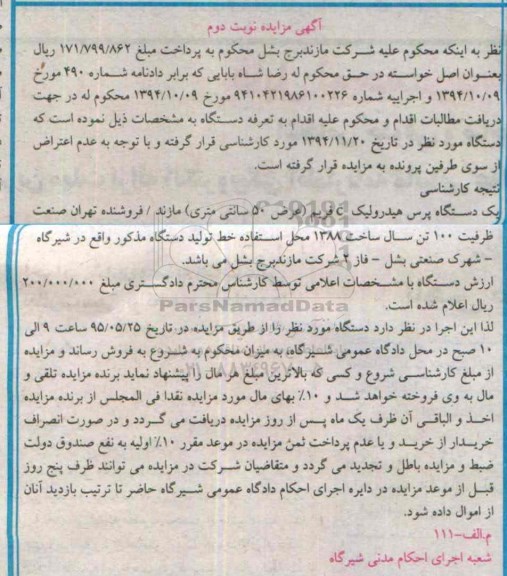 آگهی مزایده نوبت دوم
نظر به اینکه محکوم علیه شرکت مازندبرج بشل محکوم به پرداخت مبلغ ۱۷۱/۷۹۹/۸۶۲ ریال
بعنوان اصل خواسته در حق محکوم له رضا شاه بابایی که برابر دادنامه شماره ۴۹۰ مورخ
۱۳۹۴/۱۰/۰۹ و اجراییه شماره ۹۴۱۰۴۲۱۹۸۶۱۰۰۲۲۶ مورخ ۱۳۹۴/۱۰/۰۹ محکوم له در جهت
دریافت مطالبات اقدام و محکوم علیه اقدام به تعرفه دستگاه به مشخصات ذیل نموده است که
دستگاه مورد نظر در تاریخ ۱۳۹۴/۱۱/۲۰ مورد کارشناسی قرار گرفته و با توجه به عدم اعتراض
از سوی طرفین پرونده به مزایده قرار گرفته است.
نتیجه کارشناسی
یک دستگاه پرس هیدرولیک C فرم (عرض ۵۰ سانتی متری) مازند / فروشنده تهران صنعت
ظرفیت ۱۰۰ تن سال ساخت ۱۳۸۸ محل استفاده خط تولید دستگاه مذکور واقع در شیرگاه
– شهرک صنعتی بشل – فاز ۲ شرکت مازندبرج بشل می باشد.
ارزش دستگاه با مشخصات اعلامی توسط کارشناس محترم دادگستری مبلغ ۲۰۰/۰۰۰/۰۰۰
ریال اعلام شده است.
ParsNamadData
لذا این اجرا در نظر دارد دستگاه مورد نظر را از طریق مزایده در تاریخ ۹۵/۰۵/۲۵ ساعت ۹ الی
۱۰ صبح در محل دادگاه عمومی شیرگاه، به میزان محکوم به شروع به فروش رساند و مزایده
از مبلغ کارشناسی شروع و کسی که بالاترین مبلغ هر مال را پیشنهاد نماید برنده مزایده تلقی و
مال به وی فروخته خواهد شد و ۱۰٪ بهای مال مورد مزایده نقدا فی المجلس از برنده مزایده
اخذ و الباقی آن ظرف یک ماه پس از روز مزایده دریافت می گردد و در صورت انصراف
خریدار از خرید و یا عدم پرداخت ثمن مزایده در موعد مقرر ۱۰٪ اولیه به نفع صندوق دولت
ضبط و مزایده باطل و تجدید می گردد و متقاضیان شرکت در مزایده می توانند ظرف پنج روز
قبل از موعد مزایده در دایره اجرای احکام دادگاه عمومی شیرگاه حاضر تا ترتیب بازدید آنان
از اموال داده شود.
م.الف-۱۱۱
شعبه اجرای احکام مدنی شیرگاه